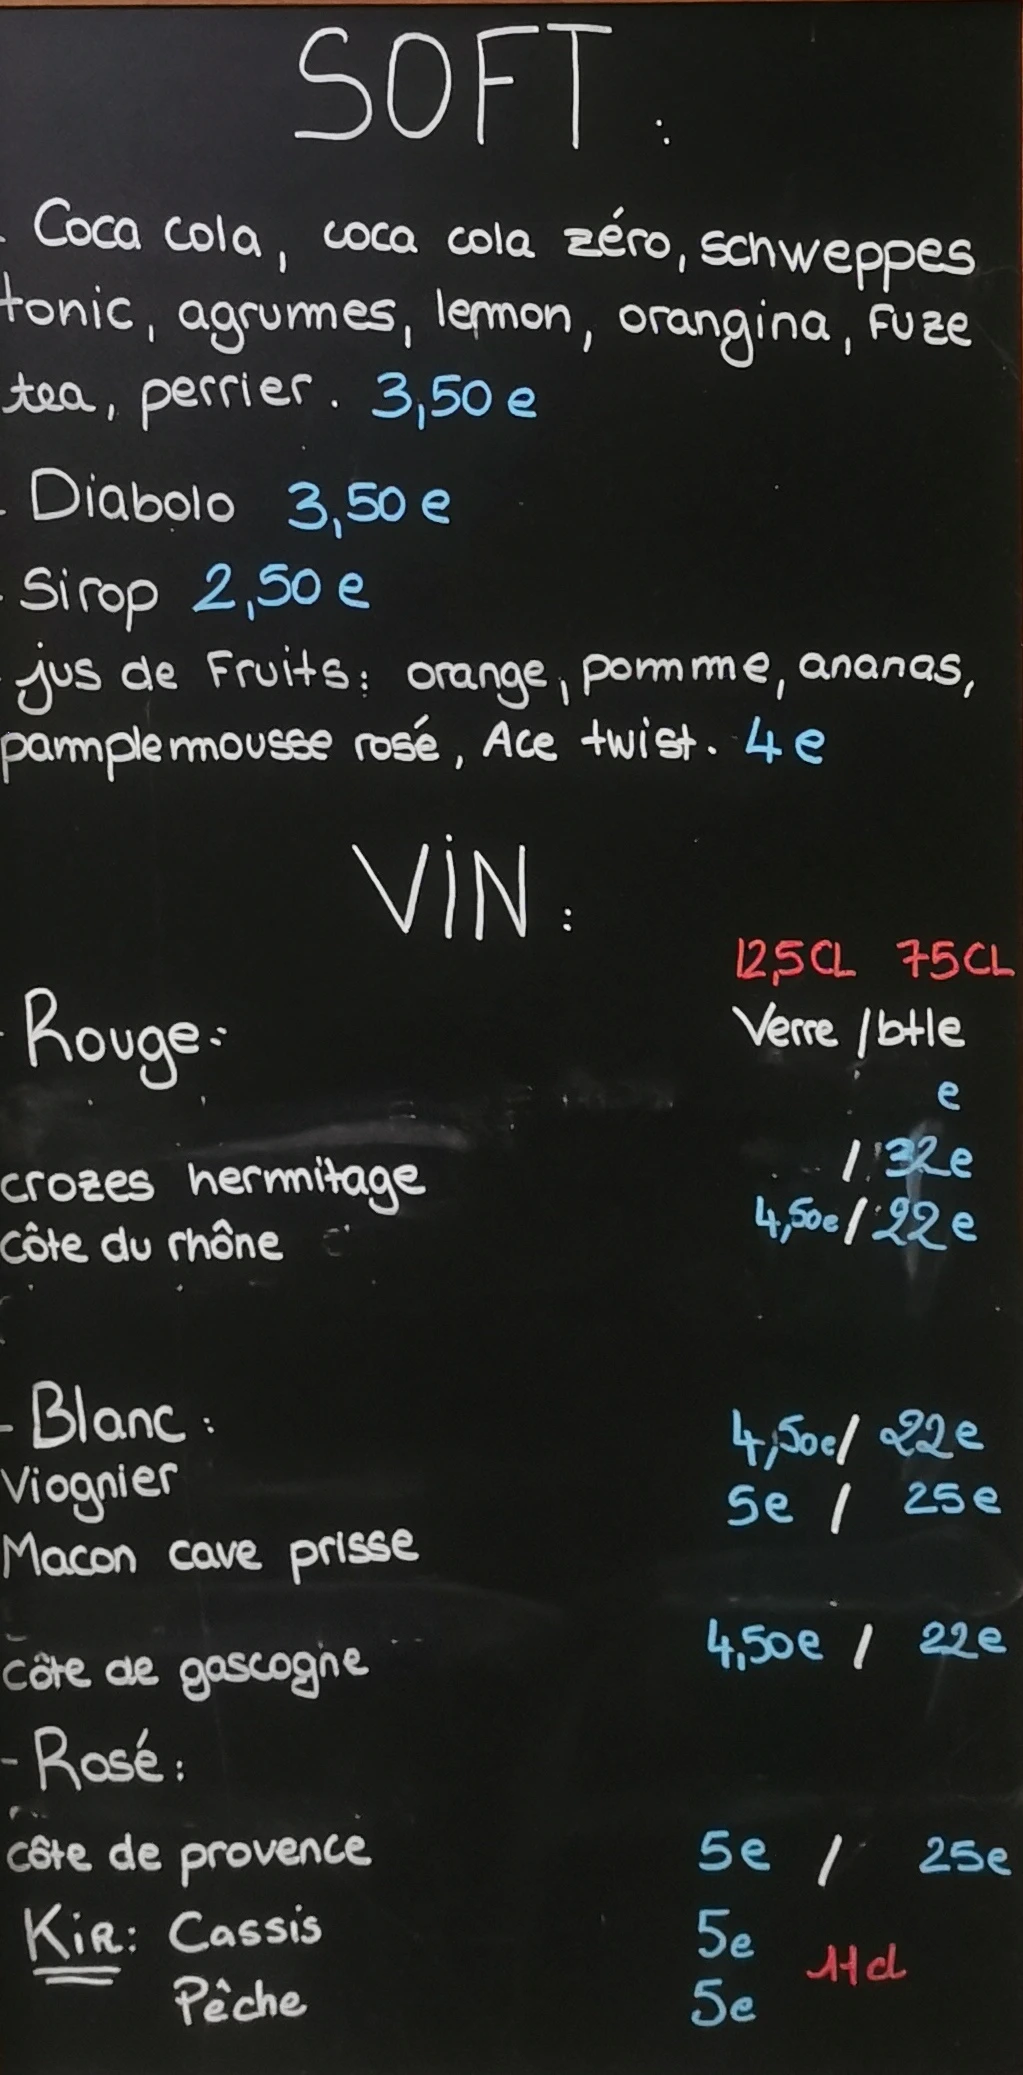 SOFT :
- Coca cola, coca cola zéro, schweppes
tonic, agrumes, lemon, orangina, Fuze
tea, perrier. 3,50 e
- Diabolo 3,50 e
- Sirop 2,50 e
- jus de Fruits: orange, pomme, ananas,
pamplemousse rosé, Ace twist. 4 e
VIN :
12,5CL 75CL
- Rouge: Verre / btle
e
crozes hermitage / 32e
côte du rhône 4,50e / 22e
- Blanc : 4,50e / 22e
Viognier 5e / 25e
Macon cave prisse
côte de gascogne 4,50e / 22e
- Rosé :
côte de provence 5e / 25e
KiR: Cassis 5e 11cl
Pêche 5e